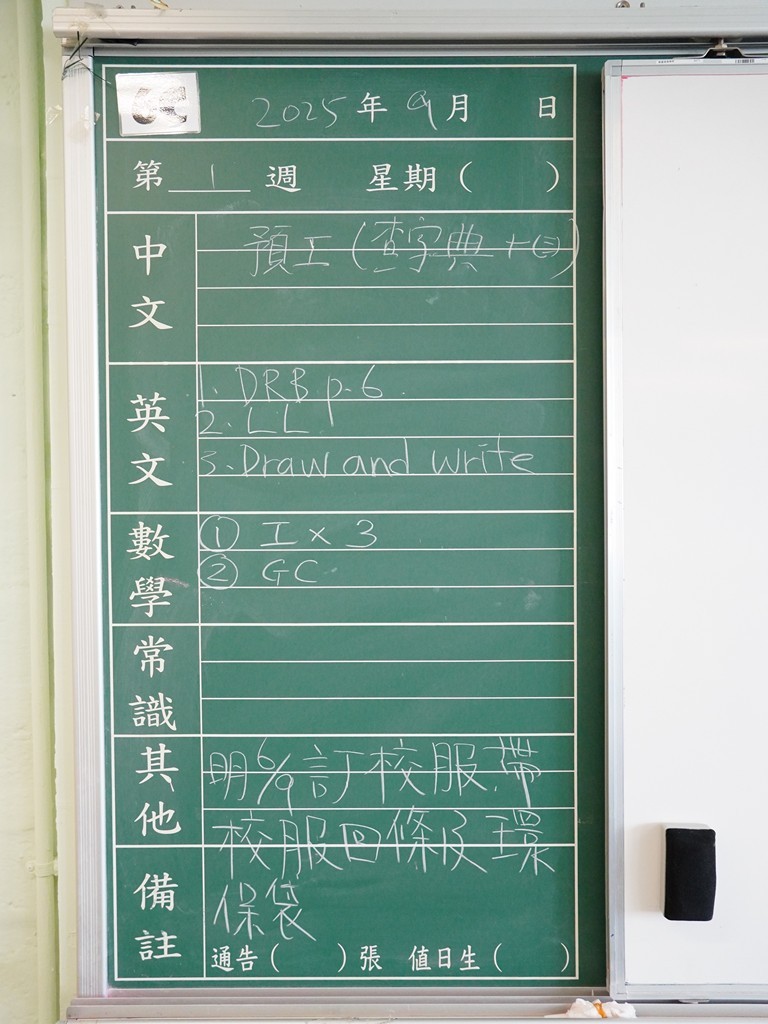 6C
2025年9月 日
第1週 星期( )
中文
預工(查字典+㊂)
英文
1. DRB p.6.
2. LL
3. Draw and write
數學
① I x 3
② GC
常識
其他
明6/9訂校服,帶
校服回條及環
保袋
備註
通告( )張 值日生( )